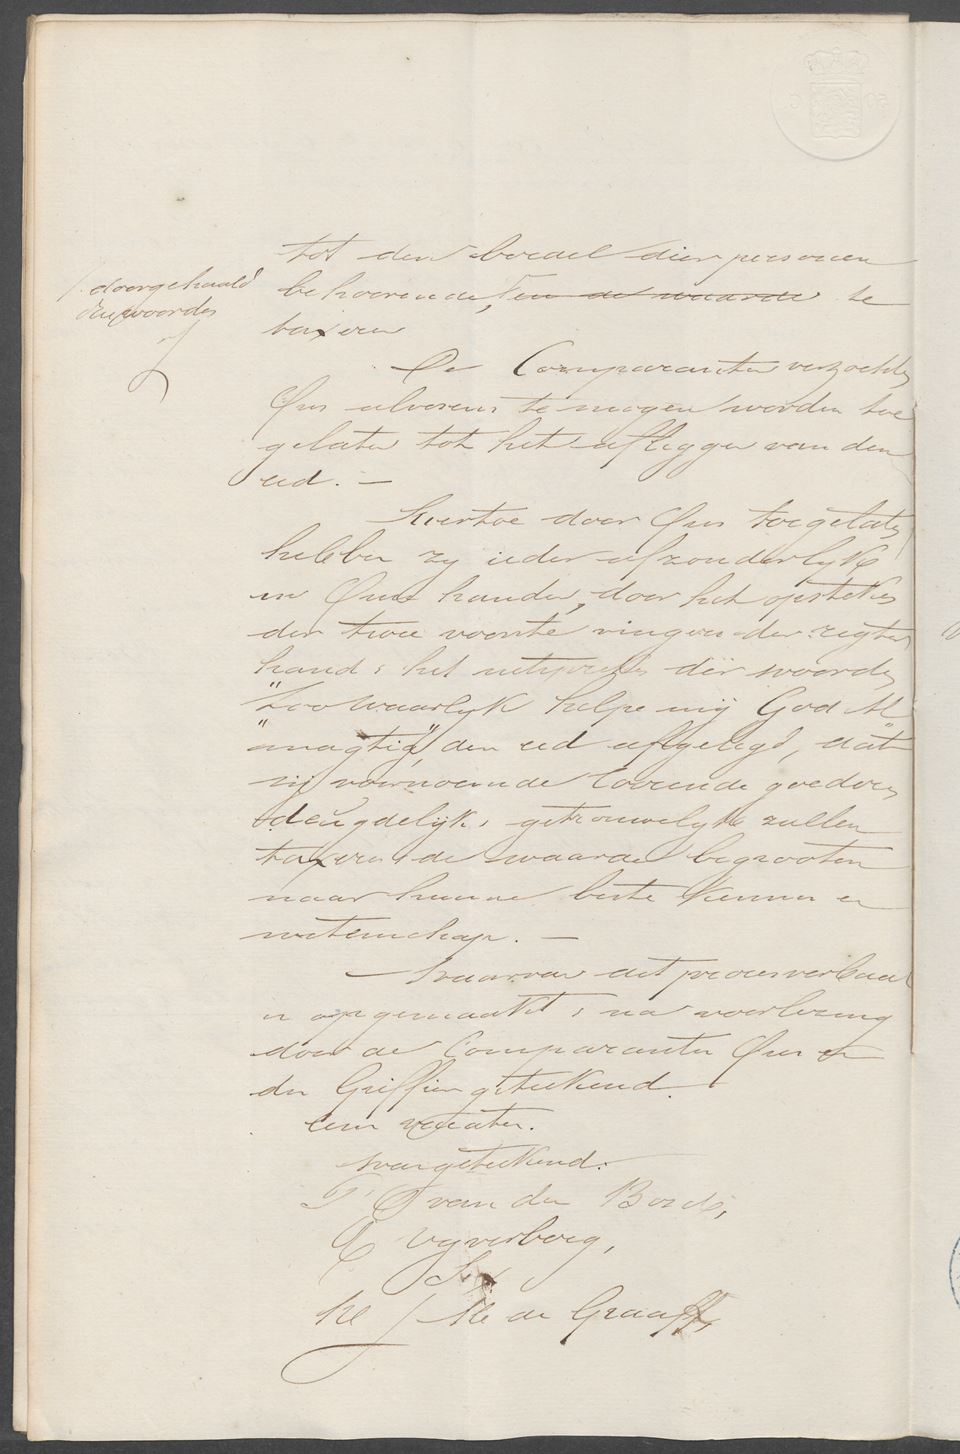 tot den boedel dier personen
/. doorgehaald
drie woorden
behoorende, en de waarde te
taxeren
De Comparanten verzochten
Ons alvorens te mogen worden toe
gelaten tot het afleggen van den
eed. —
Hiertoe door Ons toegelaten
hebben zy ieder afzonderlyk
in Onze handen, door het opsteken
der twee voorste vingers der regter
hand & het uitspreken der woorden
"Zoo waarlyk helpe mij God Al
"magtig", den eed afgelegd, dat
zij voornoemde roerende goederen
deugdelijk & getrouwelyk zullen
taxeren & de waarde begrooten
naar hunne beste kennis en
wetenschap. —
— Waarvan dit procesverbaal
is opgemaakt & na voorlezing
door de Comparanten Ons en
den Griffier geteekend.
een vacatie.
was geteekend:
van den Bosch,
Vyverberg,
Six
de Graaff,